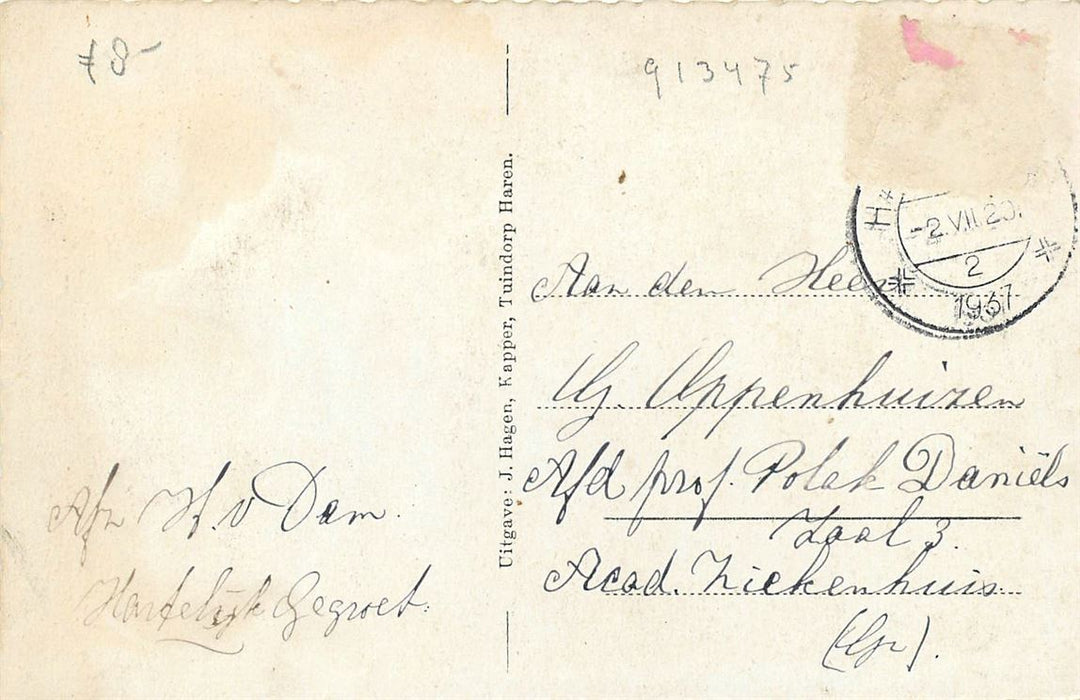 913475
H
-2.VII.20.
2
1937
Uitgave: J. Hagen, Kapper, Tuindorp Haren.
Aan den Heer
G. Uppenhuizen
Afd prof. Polak Daniëls
Zaal 3.
Acad. Ziekenhuis
(Gr).
Afz H. v Dam.
Hartelijk Gegroet.